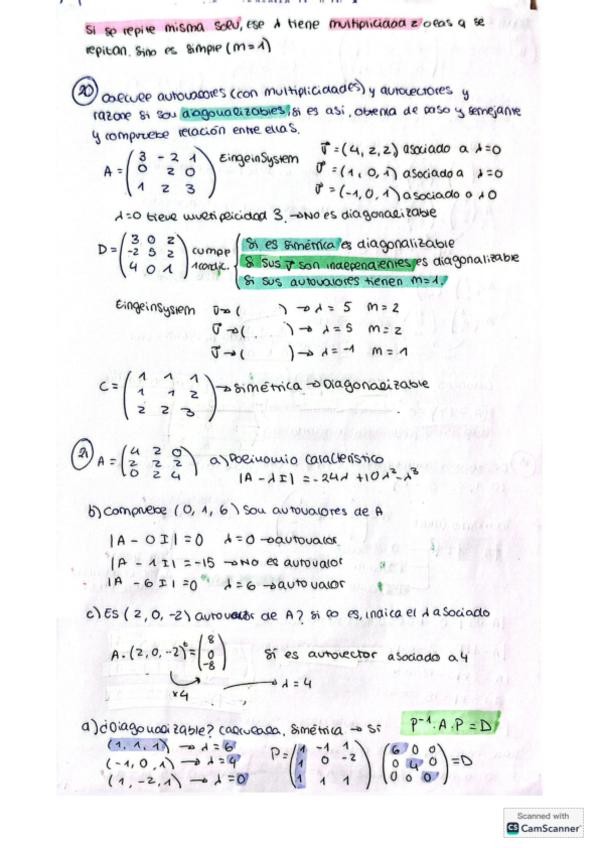 Si se repite misma solu, ese λ tiene multiplicidad 2 o las q se
repitan. Sino es simple (m=1)
20 Calcule autovalores (con multiplicidades) y autovectores y
razone si sou diagonalizables, si es así, obtenia de paso y semejante
y compruebe relación entre ellas.
A = (3 -2 1 EingeinSystem v⃗ = (4, 2, 2) asociado a λ=0
0 2 0 v⃗ = (1, 0, 1) asociado a λ=0
1 2 3) v⃗ = (-1, 0, 1) asociado a λ0
λ=0 tieve multiplicidad 3. → No es diagonalizable
D = (3 0 2 Si es simétrica es diagonalizable
-2 5 2 cumple 1 condic. Si sus v⃗ son independientes es diagonalizable
4 0 1) Si sus autovalores tienen m=1.
EingeinSystem v⃗→( ) → λ = 5 m = 2
v⃗→( ) → λ = 5 m = 2
v⃗→( ) → λ = -1 m = 1
C = (1 1 1
1 1 2 → Simétrica → Diagonalizable
2 2 3)
21 A = (4 2 0
2 2 2 a) Polinomio característico
0 2 4) |A - λI| = -24λ + 10λ² - λ³
b) Compruebe (0, 1, 6) sou autovalores de A
|A - 0I| = 0 λ=0 → autovalor
|A - 1I| = -15 → No es autovalor
|A - 6I| = 0 λ = 6 → autovalor
c) ES (2, 0, -2) autovector de A? Si lo es, indica el λ asociado
A · (2, 0, -2)ᵗ = (8 0 -8) Sí es autovector asociado a 4
x4 → λ = 4
a) ¿Diagonalizable? Simétrica → Sí P⁻¹ · A · P = D
(1, 1, 1) → λ = 6 P = (1 -1 1 (6 0 0
(-1, 0, 1) → λ = 4 1 0 -2 0 4 0 = D
(1, -2, 1) → λ = 0 1 1 1) 0 0 0)
Scanned with
CS CamScanner